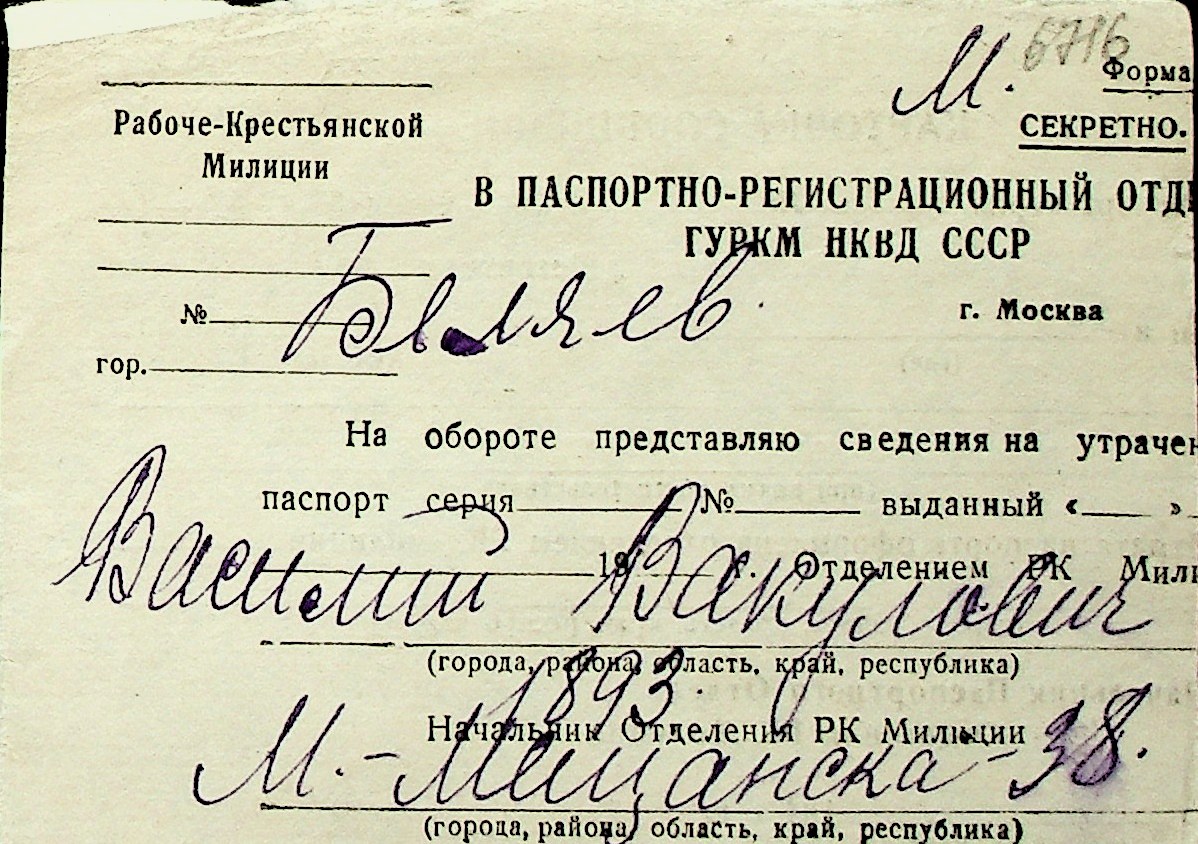 М. 6716
Форма
СЕКРЕТНО.
Рабоче-Крестьянской
Милиции
В ПАСПОРТНО-РЕГИСТРАЦИОННЫЙ ОТДЕ
ГУРКМ НКВД СССР
Беляев
№
г. Москва
гор.
На обороте представляю сведения на утрачен
паспорт серия № выданный « »
Василий Вакулович
19 г. Отделением РК Мили
(города, района, область, край, республика)
1893.
Начальник Отделения РК Милиции
М.-Мещанска-38.
(города, района, область, край, республика)